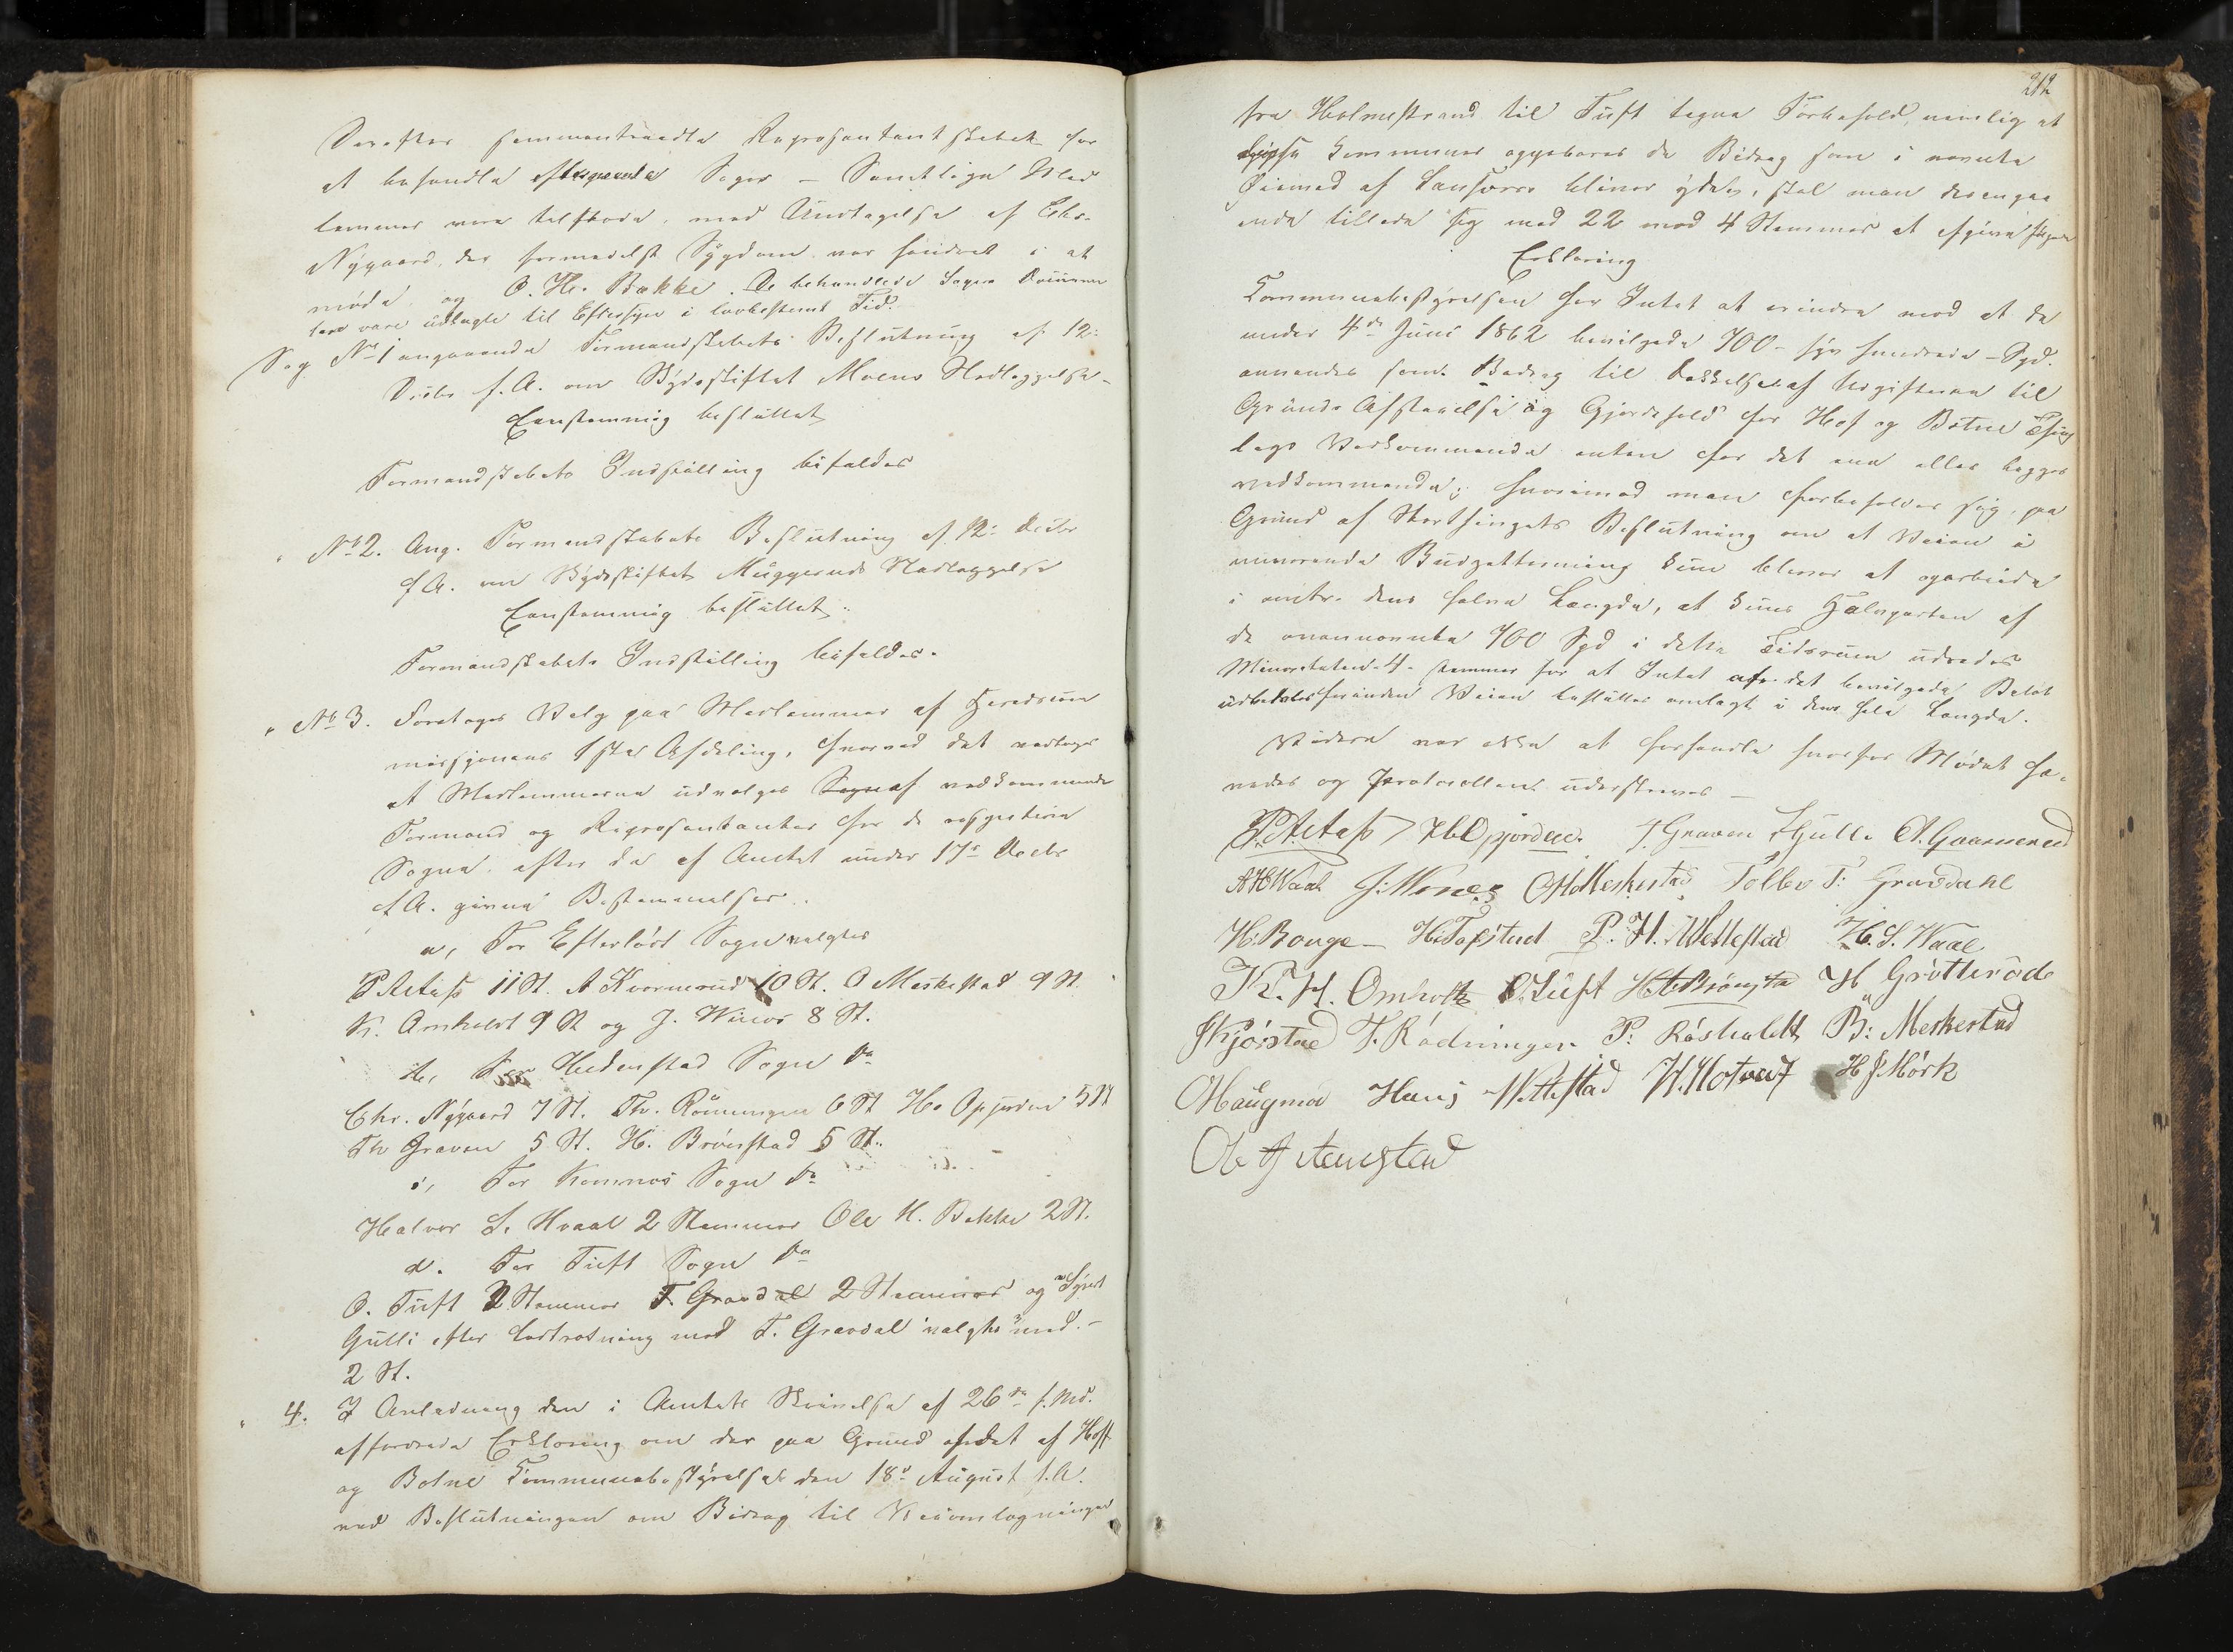 Derefter sammentraadte Repræsentantskabet for
at behandle efternævnte Sager – Samtlige Med
lemmer vare tilstede, med Undtagelse af Chr.
Nygaard, der formedelst Sygdom var hindret i at
møde, og O. H. Bække. De behandlede Sagers Documen
ter vare udlagte til Eftersyn i lovbestemt Tid.
Sag No 1 angaaende Formandskabets Beslutning af 12:
Decbr f. A. om Skydsskiftet Moens Nedlæggelse –
Eenstemmig besluttet
Formandskabets Indstilling bifaldes
" No 2. Ang. Formandskabets Beslutning af 12: Decbr
f A. om Skydsskiftet Muggeruds Nedlæggelse
Eenstemmig besluttet:
Formandskabets Indstilling bifaldes.
" No 3. Foretoges Valg paa Medlemmer af Heredscom
missjonens 1ste Afdeling, hvorved det vedtoges
at Medlemmerne udvælges Sogn af vedkommende
Formænd og Repræsentanter for de respective
Sogne, efter de af Amtet under 17de Decbr
f A. givne Bestemmelser.
a, For Efterløst Sogn valgtes
P Aetass 11 St. A Kvernerud 10 St. O Meskestad 9 St.
K. Omholdt 9 St og J. Winor 8 St.
b, For Hedenstad Sogn do
Chr. Nygaard 7 St. Th. Rønningen 6 St H. Opjorden 5 St
Th Graven 5 St. H. Brønstad 5 St.
c, For Komnæs Sogn do
Halvor S. Hvaal 2 Stemmer Ole H. Bække 2 St.
d. For Tuft Sogn do
O. Tuft 2 Stemmer T. Gravdal 2 Stemmer og Syvert
Gulli efter Lodtrækning med T. Gravdal valgt med –
2 St.
" 4. I Anledning den i Amtets Skrivelse af 26de f. Md.
affordrede Erklæring om der paa Grund af det af Hoff
og Botne Communebestyrelser den 18de August f. A.
ved Beslutningen om Bidrag til Veiomlægningen
212
fra Holmestrand til Tuft tagne Forbehold, nemlig at
disse Kommuner oppebærer de Bidrag som i nævnte
Øiemed af Landførere bliver ydet, skal man desangaa
ende tillade sig med 22 mod 4 Stemmer at afgive følgende
Erklæring
Communebestyrelsen har Intet at erindre mod at de
under 4de Juni 1862 bevilgede 700 – syv hundrede – Spd.
anvendes som Bidrag til Dækkelse af Udgifterne til
Grunds Afstaaelse og Gjerdehold for Hof og Botne Thing
lags Vedkommende enten for det ene eller begges
vedkommende; hvorimod man forbeholder sig, paa
Grund af Storthingets Beslutning om at Veien i
nuværende Budgettermin kun bliver at oparbeide
i omtr. dens halve Længde, at kuns Halvparten af
de ovennævnte 700 Spd i dette Tidsrum udredes
Minoriteten 4 stemmer for at Intet af det bevilgede Beløb
udbetales forinden Veien besluttes omlagt i dens hele Længde.
Videre var ikke at forhandle hvorfor Mødet hæ-
vedes og Protocollen underskreves –
P. Aetass HbOpjorden. T. Graven S Gulli. A. Gaarnerud
A H Waal J: Winor O H Meskestad Tollev T: Gravdahl
H. Bonge – H. Tafstud P. H. Wettestad H. S. Waal
K. H. Omholt O. Tuft H. A. Brønsta H Grötteröde
J Kjörstad T. Rødningen P: Röshaldt B: Meskestad
O Haugmo Hans Wettestad H. Hotvedt H J Mørk
Ole J Aenstad